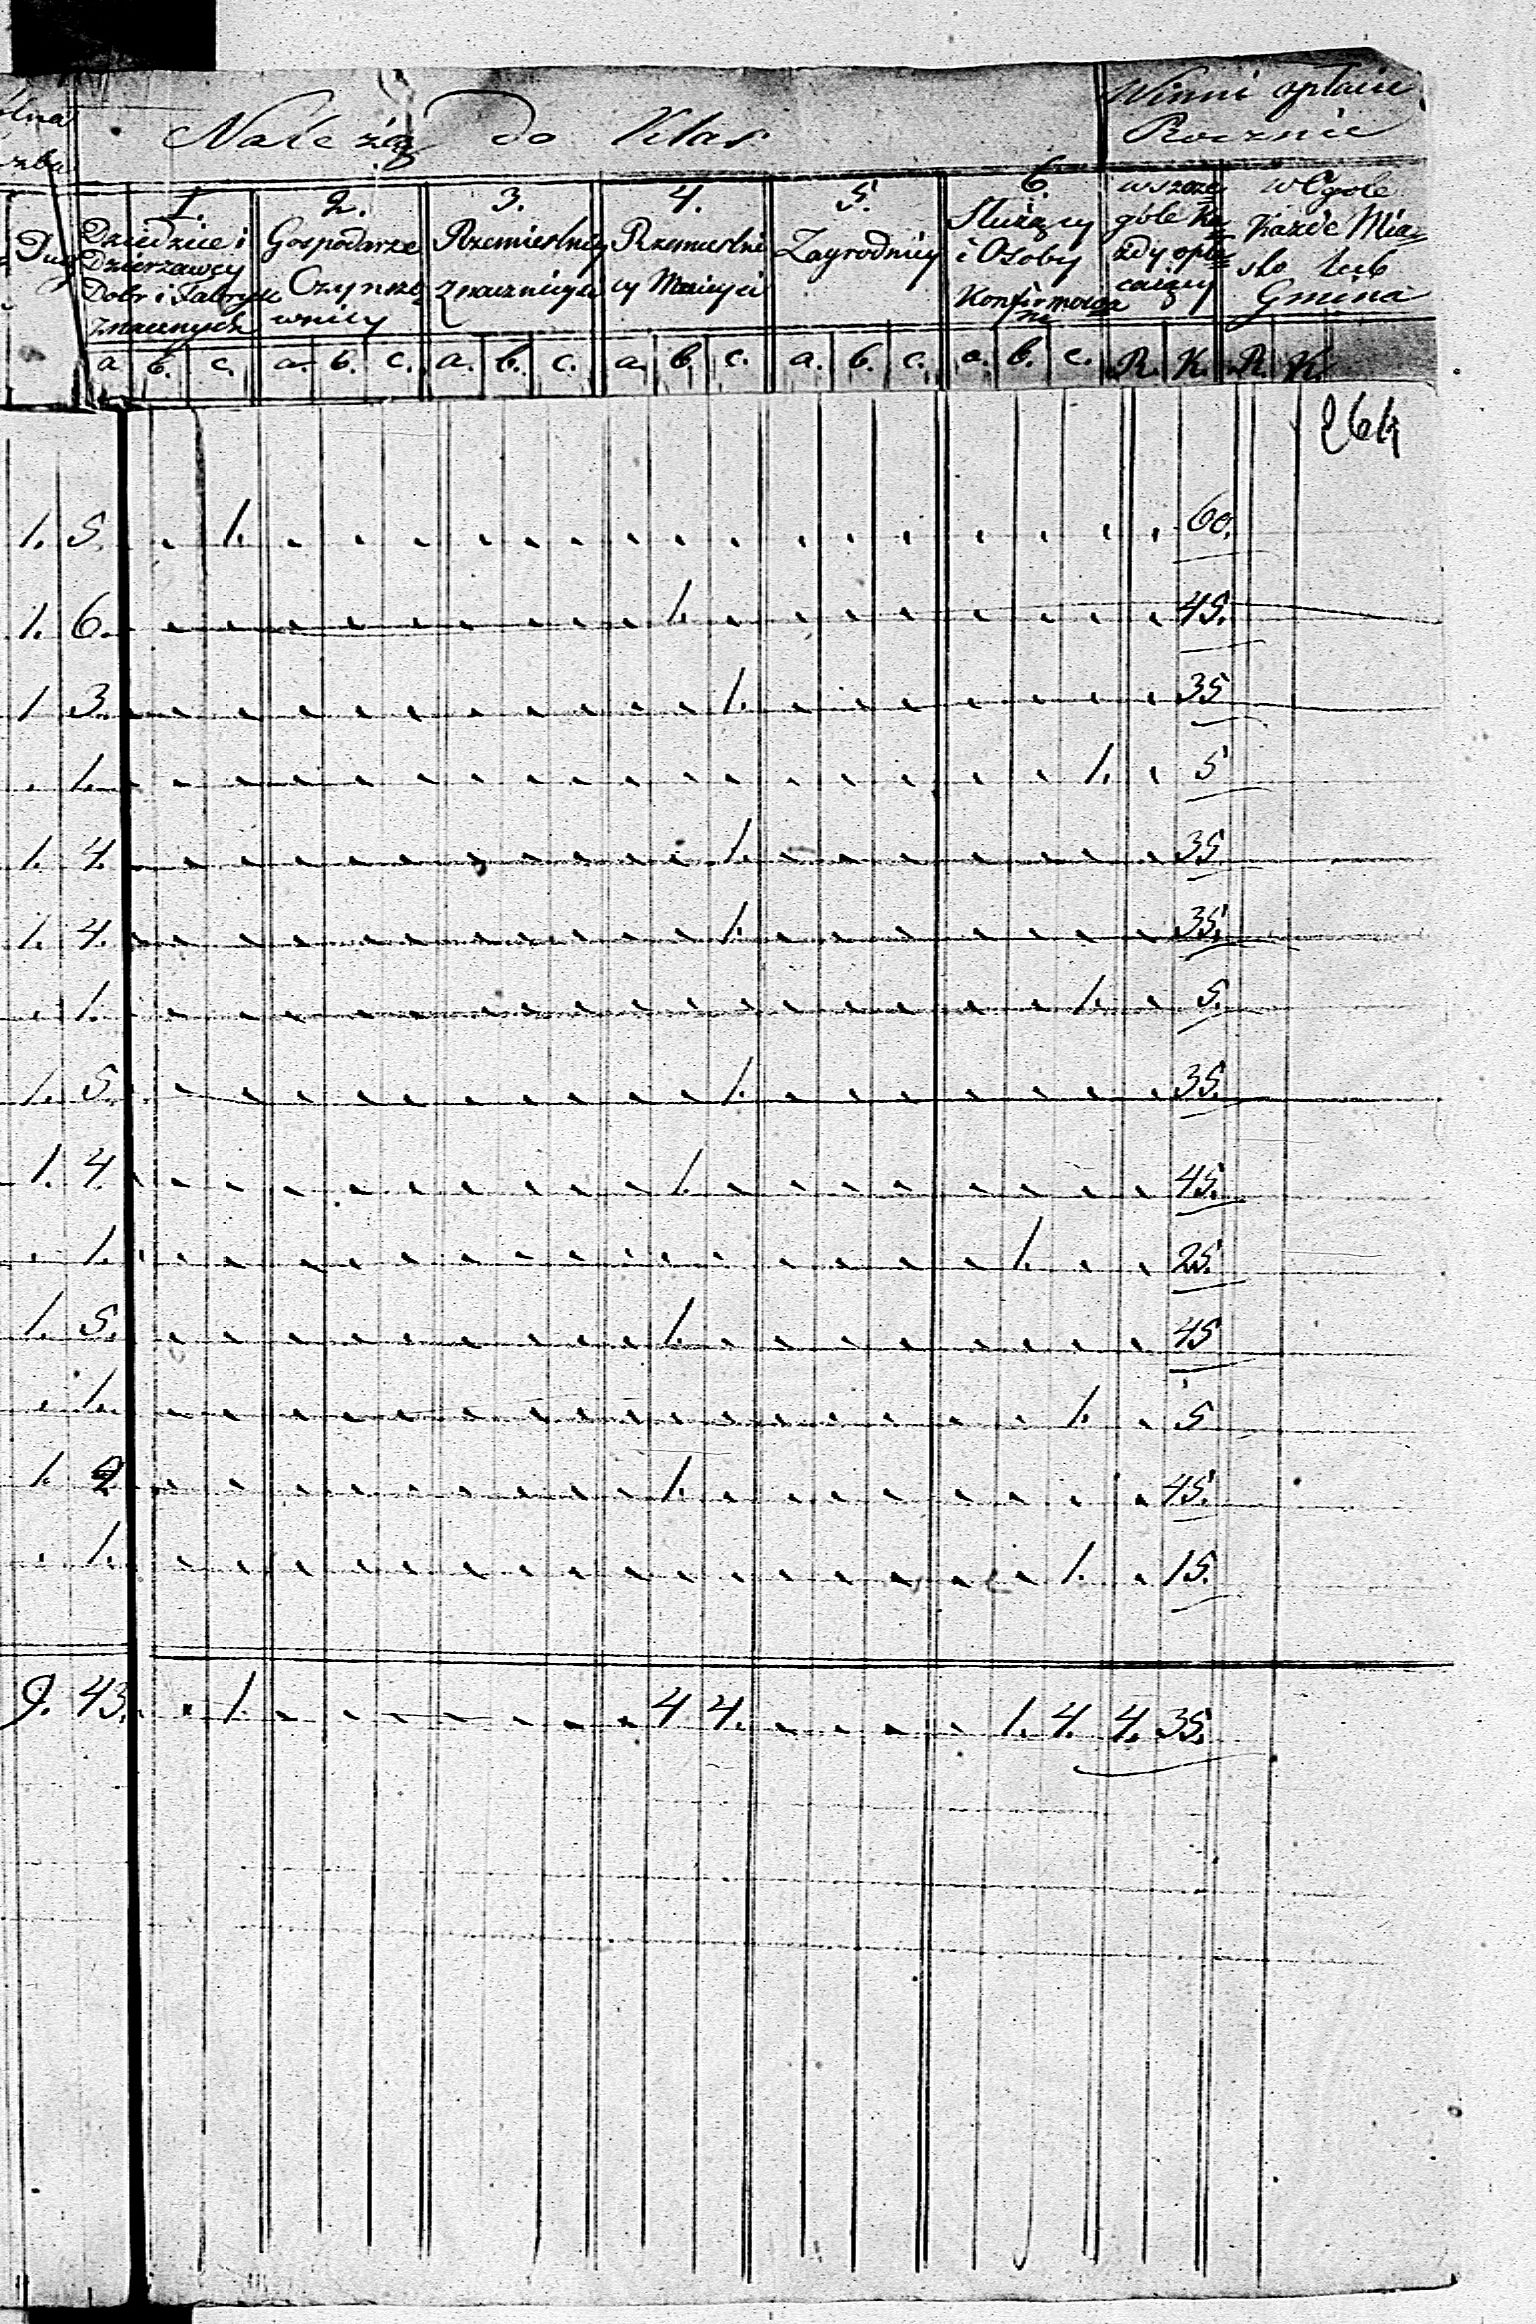 Należą do Klas
Winni opłacić
Rocznie
1. 2. 3. 4. 5. 6.
Dziedzice i
Dzierzawcy
Dobr i Fabryk
Znacznych
Gospodarze
Czynszo
wnicy
Rzemieslnicy
Znacznieysi
Rzemieslni
cy Mnieysi
Zagrodnicy
Służący
i Osoby
Konfirmowa
ne
wszcze
góle Ka
żdy opła
cający
w Ogole
Każde Mia
sto lub
Gmina
a. b. c. a. b. c. a. b. c. a. b. c. a. b. c. a. b. c. R. K. R. K.
264
1. 5. 1. 60.
1. 6. 1. 45.
1 3. 1. 35
. 1. 1. 5
1. 4. 1. 35
1. 4. 1. 35.
. 1. 1. 5.
1. 5. 1. 35.
1. 4. 1. 45.
. 1. 1. 25.
1. 5. 1. 45
. 1. 1. 5
1. 2 1. 45.
. 1. 1. 15.
9. 43. 1. 4 4. 1. 4. 4. 35.